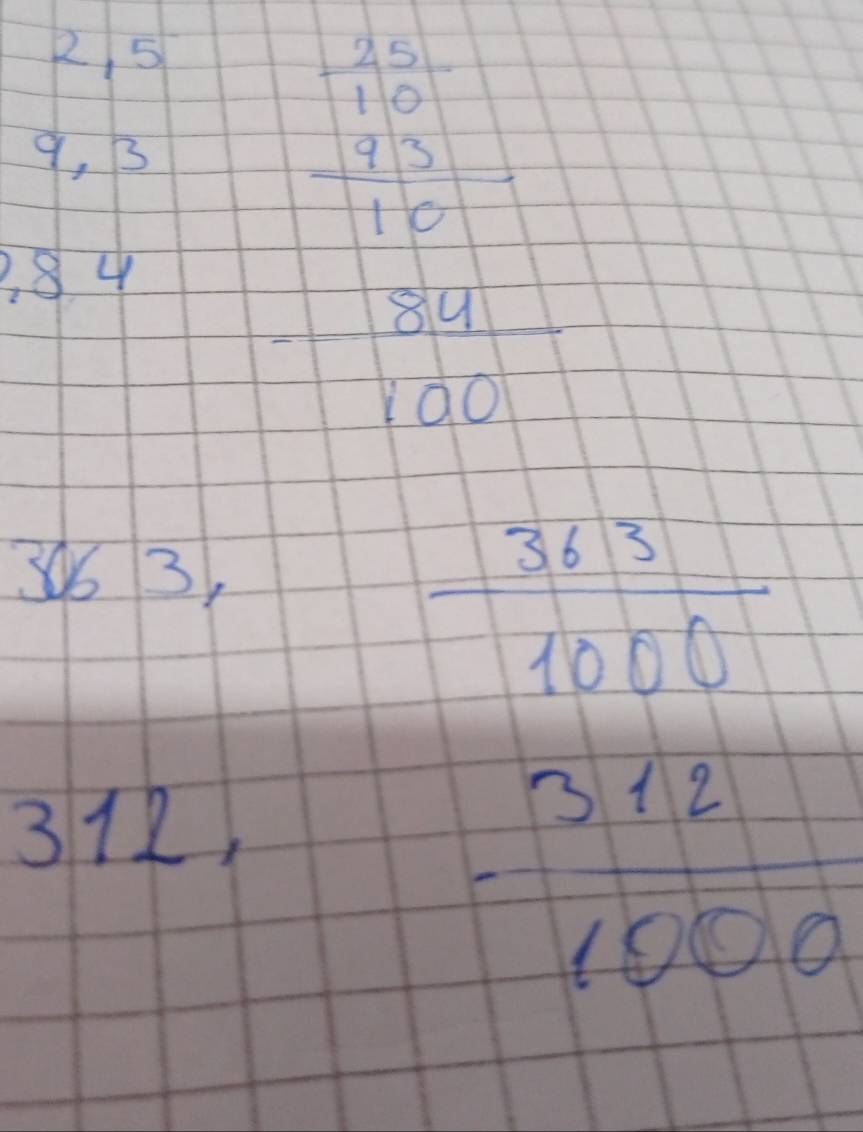 2,5 25
10
9,3 93
10
,84 84
100
363, 363
1000
312, 312
1000